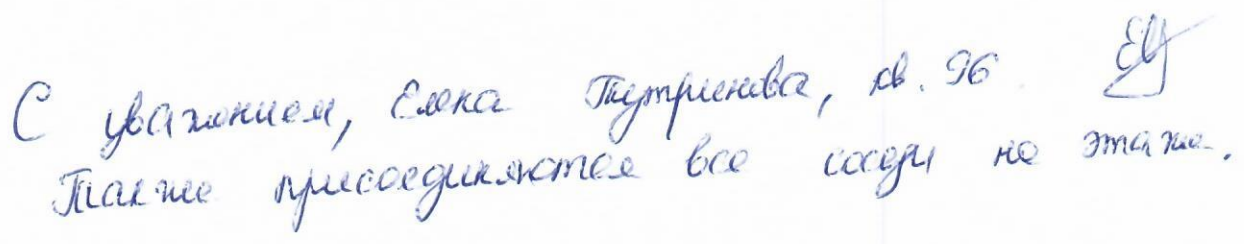 С уважением, Елена Тутринова, кв. 96
Также присоединяются все соседи на этаже.